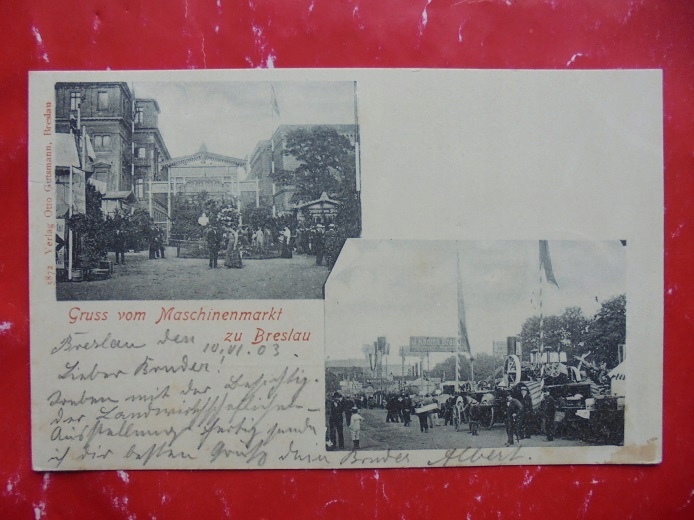 5872 Verlag Otto Gutsmann, Breslau
Gruss vom Maschinenmarkt
zu Breslau
Breslau den 10.VI.03.
Lieber Bruder!
Soeben mit der Besichtig.
der Landwirthschaftlichen
Ausstellung fertig sende
ich dir besten Gruß dein Bruder Albert.